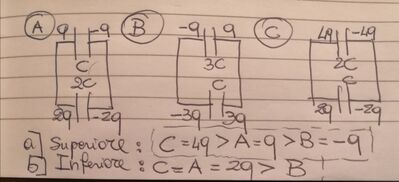 A q -q B -q q C 4q -4q
C 3C 2C
2C C C
2q -2q -3q 3q 2q -2q
a] Superiore: C=4q > A=q > B=-q
b] Inferiore: C=A=2q > B